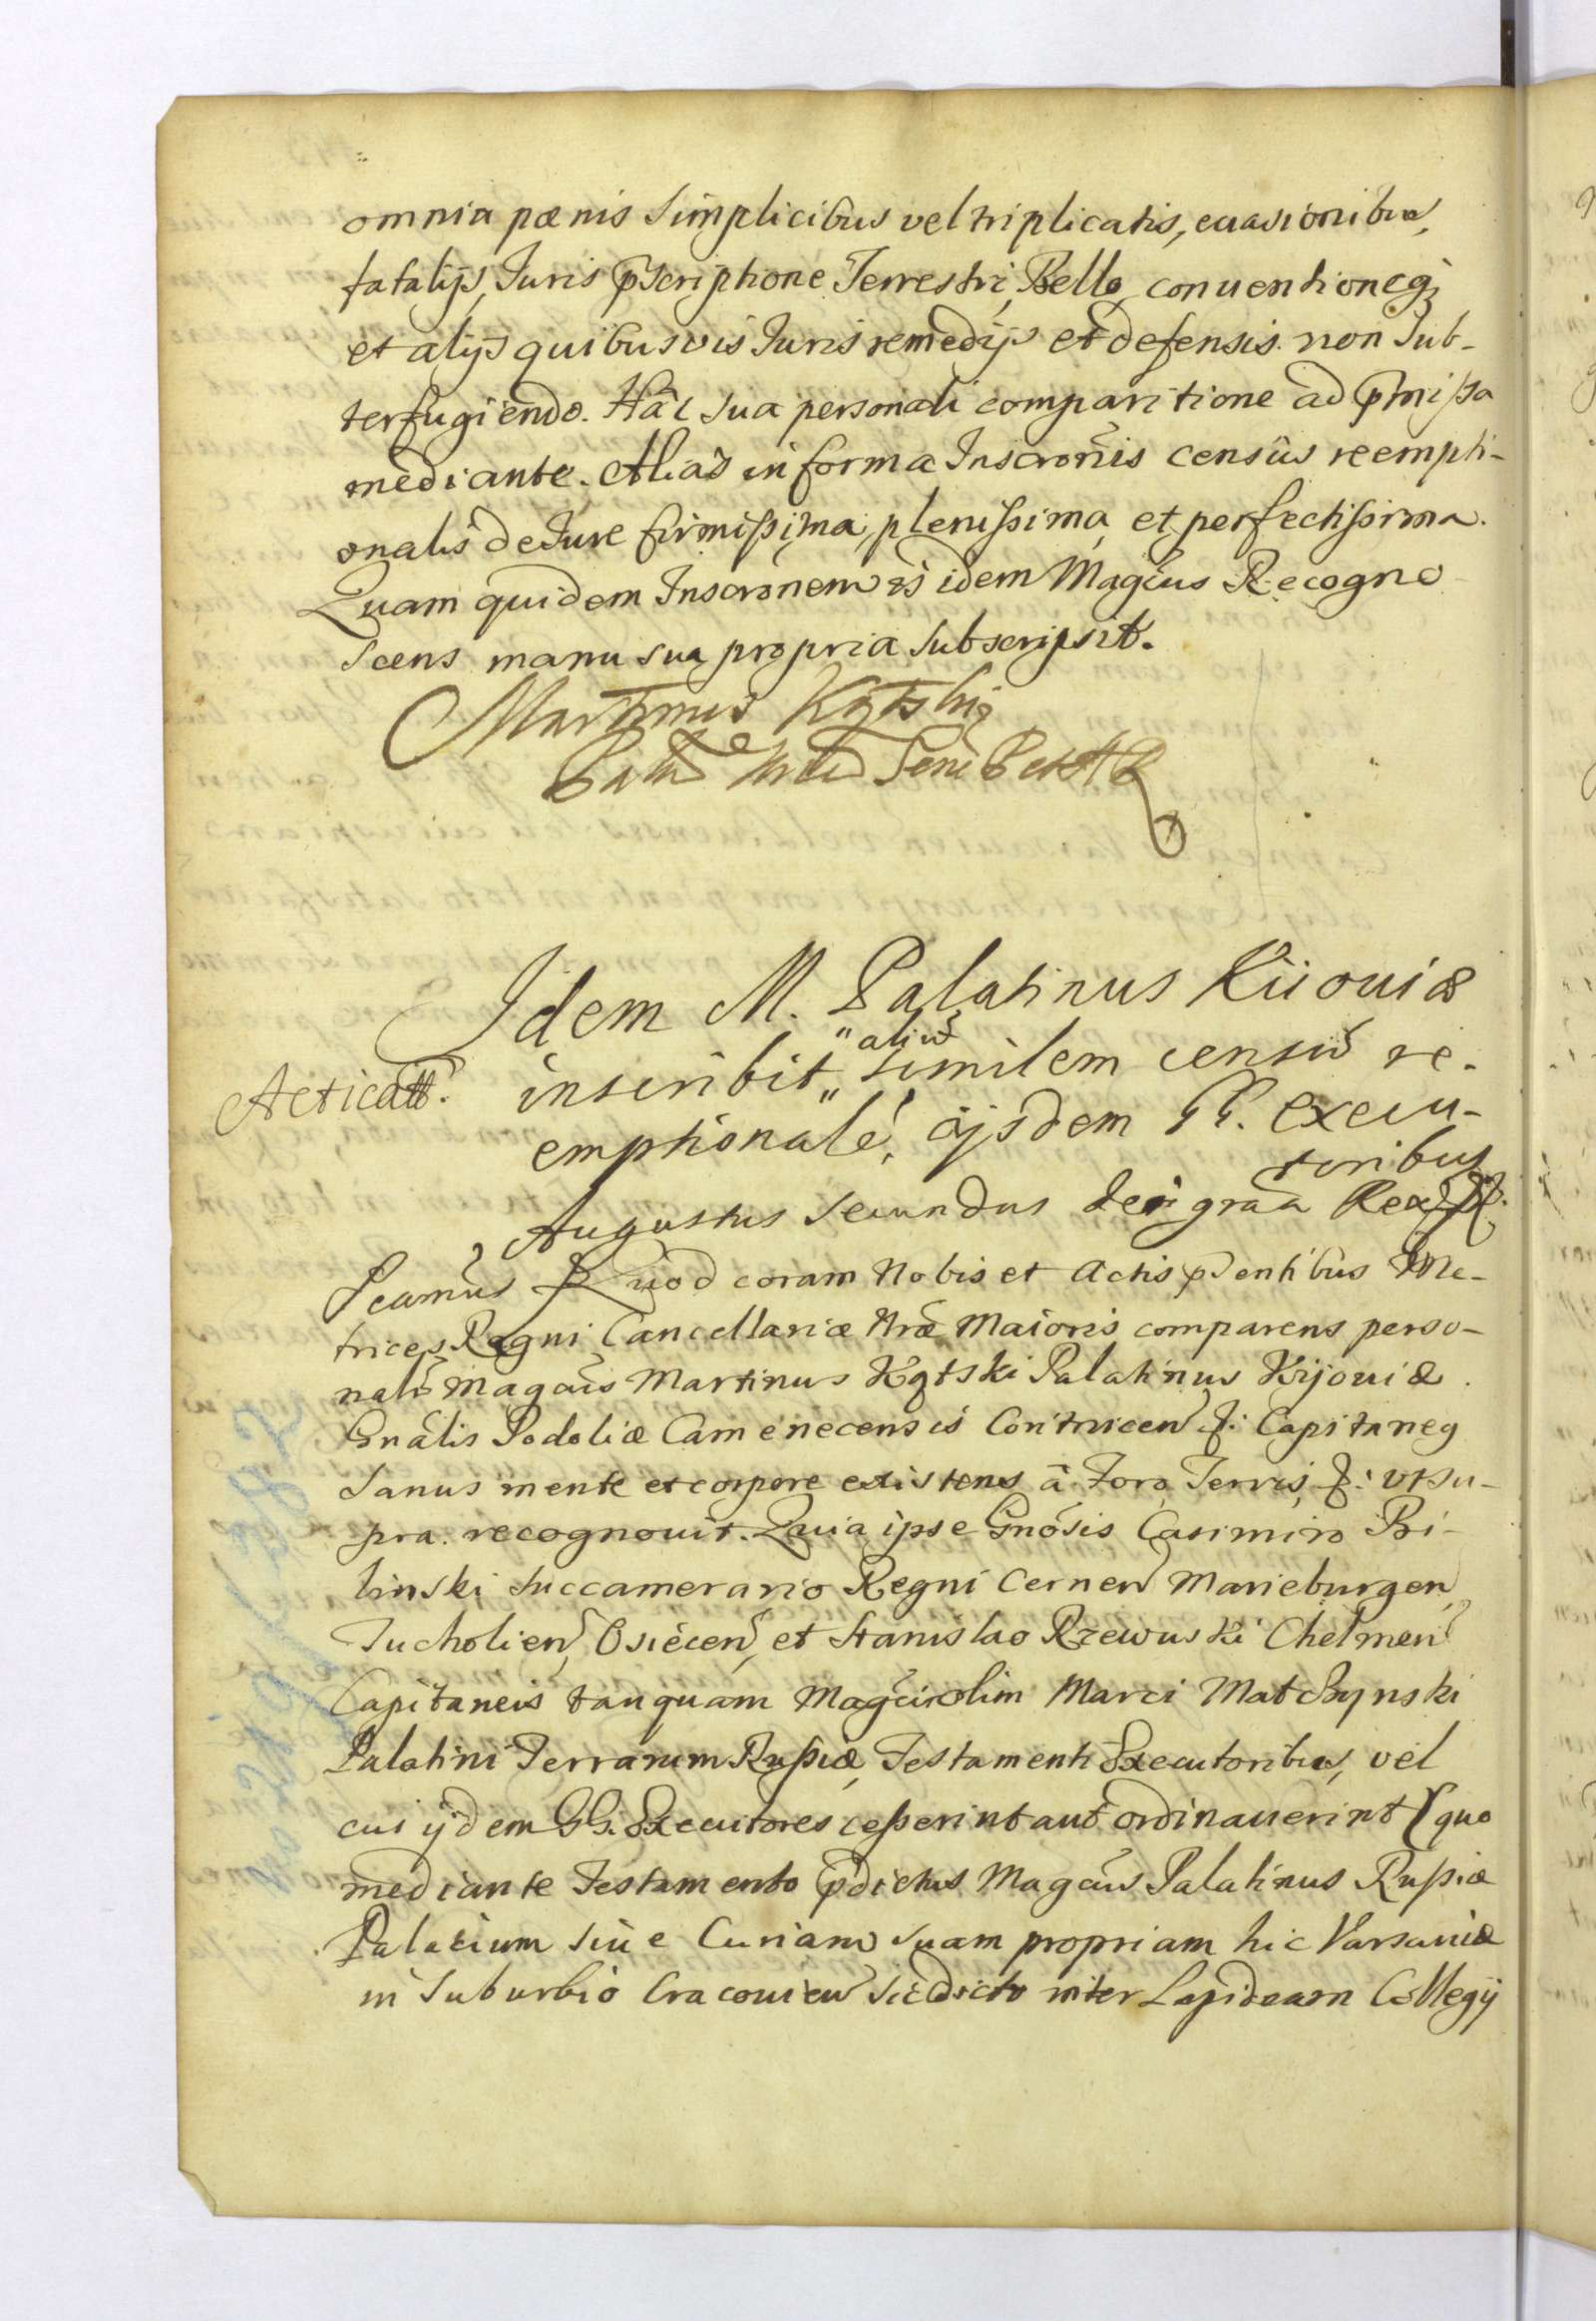 omnia pœnis simplicibus vel triplicatis, euasionibus,
fatalijs, Juris pscriptione Terrestri, Bello, conuentioneq;
et alijs quibusvis Juris remedijs et defensis non sub-
terfugiendo. Hâc sua personali comparitione ad pmissa
mediante. Alias in forma Inscronis censûs reempti-
onalis de Jure firmissima, plenissima, et perfectissima.
Quam quidem Inscronem is idem Magcus Recogno
scens manu sua propria subscripsit.
Martinus Kątski
Idem M. Palatinus Kiiouiæ
"aliũ
inscribit" similem censũ re-
Acticatt.
emptionalẽ, ijsdem GG. execu-
toribus
Augustus secundus dei graa Rex
Scamus Quod coram Nobis et Actis pntibus Me-
trices Regni Cancellariæ Nræ Maioris comparens perso-
nalr Magcus Martinus Kątski Palatinus Kijouiæ.
Gnalis Podoliæ Camenecensis Contricen Capitaneg
sanus mente et corpore existens â Foro Terris ut su-
pra. recognouit. Quia ipse Gnosis Casimiro Bi-
linski succamerario Regni Cernen Marieburgen,
Tucholien, Osiecen, et Stanislao Rzewuski Chelmen
Capitaneis tanquam Magci olim Marci Matczynski
Palatini Terrarum Russiæ, Testamenti Executoribus, vel
cui ijdem GG. Executores cesserint aut ordinauerint (quo
mediante Testamento pdictus Magcus Palatinus Russiæ
Palatium siue Curiam suam propriam hic Varsauiæ
in suburbio Cracouien sic dicto inter Lapideam Collegij